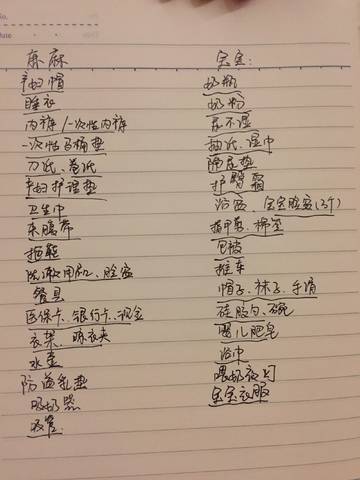 麻麻
产妇帽
睡衣
内裤/一次性内裤
一次性马桶垫
刀纸、卷纸
产妇护理垫
卫生巾
束腹带
拖鞋
洗漱用品、脸盆
餐具
医保卡、银行卡、现金
衣架、晒衣夹
水壶
防溢乳垫
吸奶器
吸管
宝宝:
奶瓶
奶粉
尿不湿
抽纸、湿巾
隔尿垫
护臀霜
浴盆、宝宝脸盆(3个)
指甲剪、棉签
包被
推车
帽子、袜子、手套
硅胶勺、碗
婴儿肥皂
浴巾
喂奶夜灯
宝宝衣服